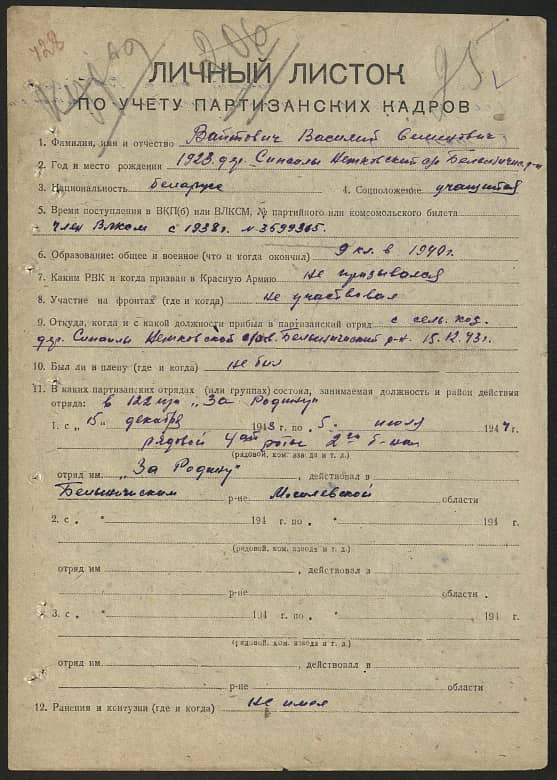 728
ЛИЧНЫЙ ЛИСТОК
ПО УЧЕТУ ПАРТИЗАНСКИХ КАДРОВ
1. Фамилия, имя и отчество Войтович Василий
2. Год и место рождения 1923 дер. Сипайлы Нетковский с/с Белыничск. р-н
3. Национальность беларус 4. Соцположение учащийся
5. Время поступления в ВКП(б) или ВЛКСМ, № партийного или комсомольского билета
член Влксм с 1938г. N 3699365.
6. Образование: общее и военное (что и когда окончил) 9 кл. в 1940г.
7. Каким РВК и когда призван в Красную Армию не призывался
8. Участие на фронтах (где и когда) не участвовал
9. Откуда, когда и с какой должности прибыл в партизанский отряд с сель. хоз.
дер. Сипайлы Нетковской Белыничский р-н 15.12.43г.
10. Был ли в плену (где и когда) не был
11. В каких партизанских отрядах (или группах) состоял, занимаемая должность и район действия
отряда: в 122 "За Родину"
1. с „ 15 " декабря 1943 г. по „ 5. " июля 1944 г.
рядовой 4ой роты 2го б-на
(рядовой, ком. взвода и т. д.)
отряд им. „За Родину" , действовал в
Белыничском р-не Могилевской области
2. с „ " 194 г. по „ " 194 г.
(рядовой, ком. взвода и т. д.)
отряд им , действовал в
р-не области.
3. с „ " 194 г. по „ " 194 г.
(рядовой, ком. взвода и т. д.)
отряд им , действовал в
р-не области
12. Ранения и контузии (где и когда) не имел